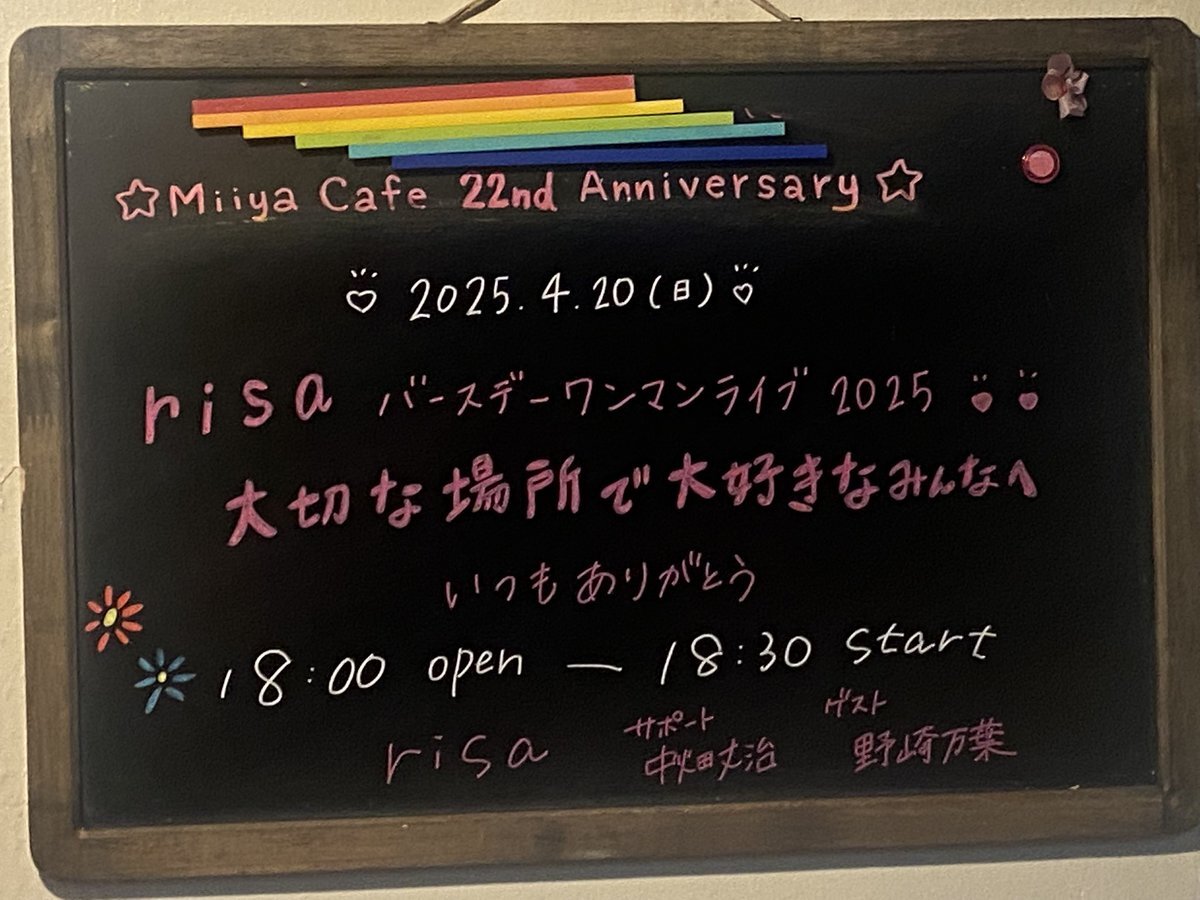 ☆Miiya Cafe 22nd Anniversary☆
♡ 2025.4.20(日) ♡
risa バースデーワンマンライブ 2025 ♥♥
大切な場所で大好きなみんなへ
いつもありがとう
18:00 open — 18:30 start
サポート ゲスト
risa 中畑丈治 野崎万葉